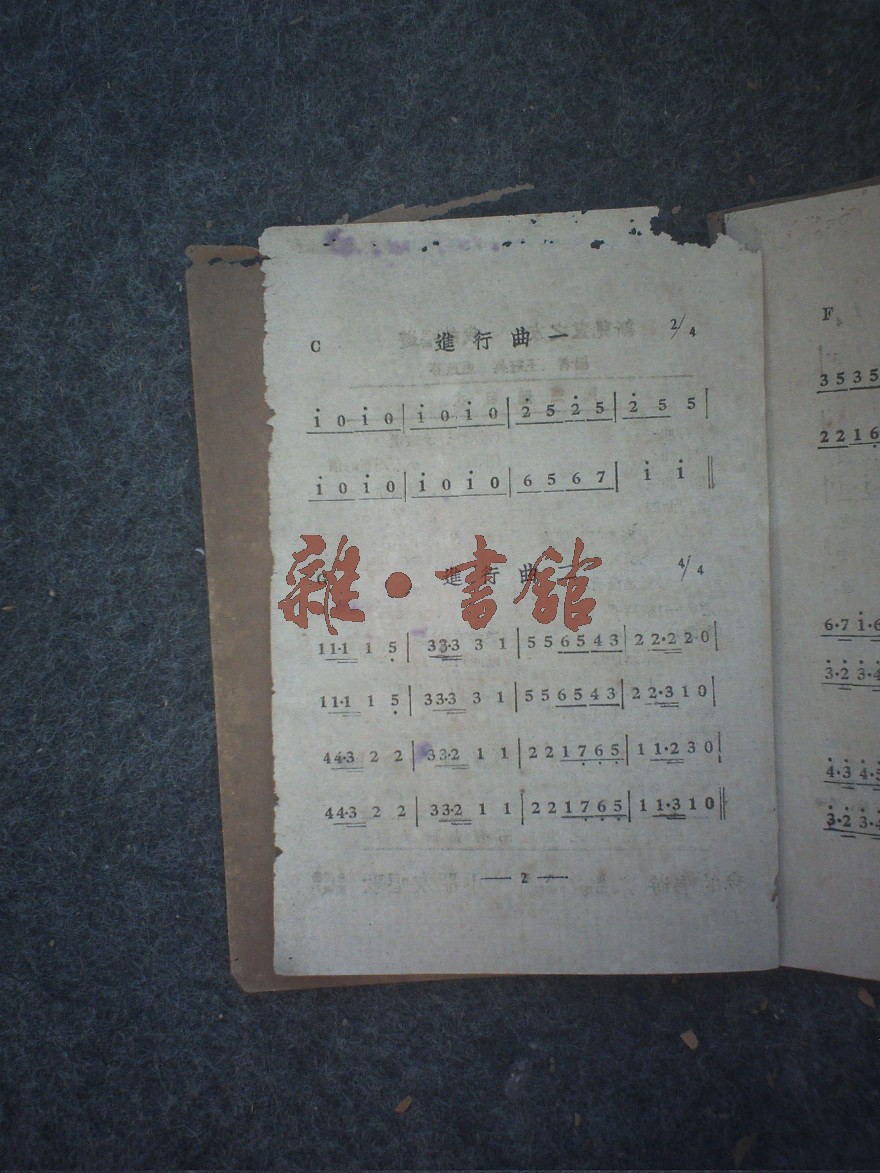 C 進行曲一 2/4
i 0 i 0 | i 0 i 0 | 2̇ 5 2̇ 5 | 2̇ 5 5 |
i 0 i 0 | i 0 i 0 | 6 5 6 7 | i i ‖
雜·書館
進行曲二 4/4
1 1·1 1 5̣ | 3 3·3 3 1 | 5 5 6 5 4 3 | 2 2·2 2·0 |
1 1·1 1 5̣ | 3 3·3 3 1 | 5 5 6 5 4 3 | 2 2·3 1 0 |
4 4·3 2 2 | 3 3·2 1 1 | 2 2 1 7̣ 6̣ 5̣ | 1 1·2 3 0 |
4 4·3 2 2 | 3 3·2 1 1 | 2 2 1 7̣ 6̣ 5̣ | 1 1·3 1 0 ‖
— 2 —
F
3 5 3 5
2 2 1 6̣
6·7 i·6
3̇·2̇ 3̇·4̇
4̇·3̇ 4̇·5̇
3̇·2̇ 3̇·4̇